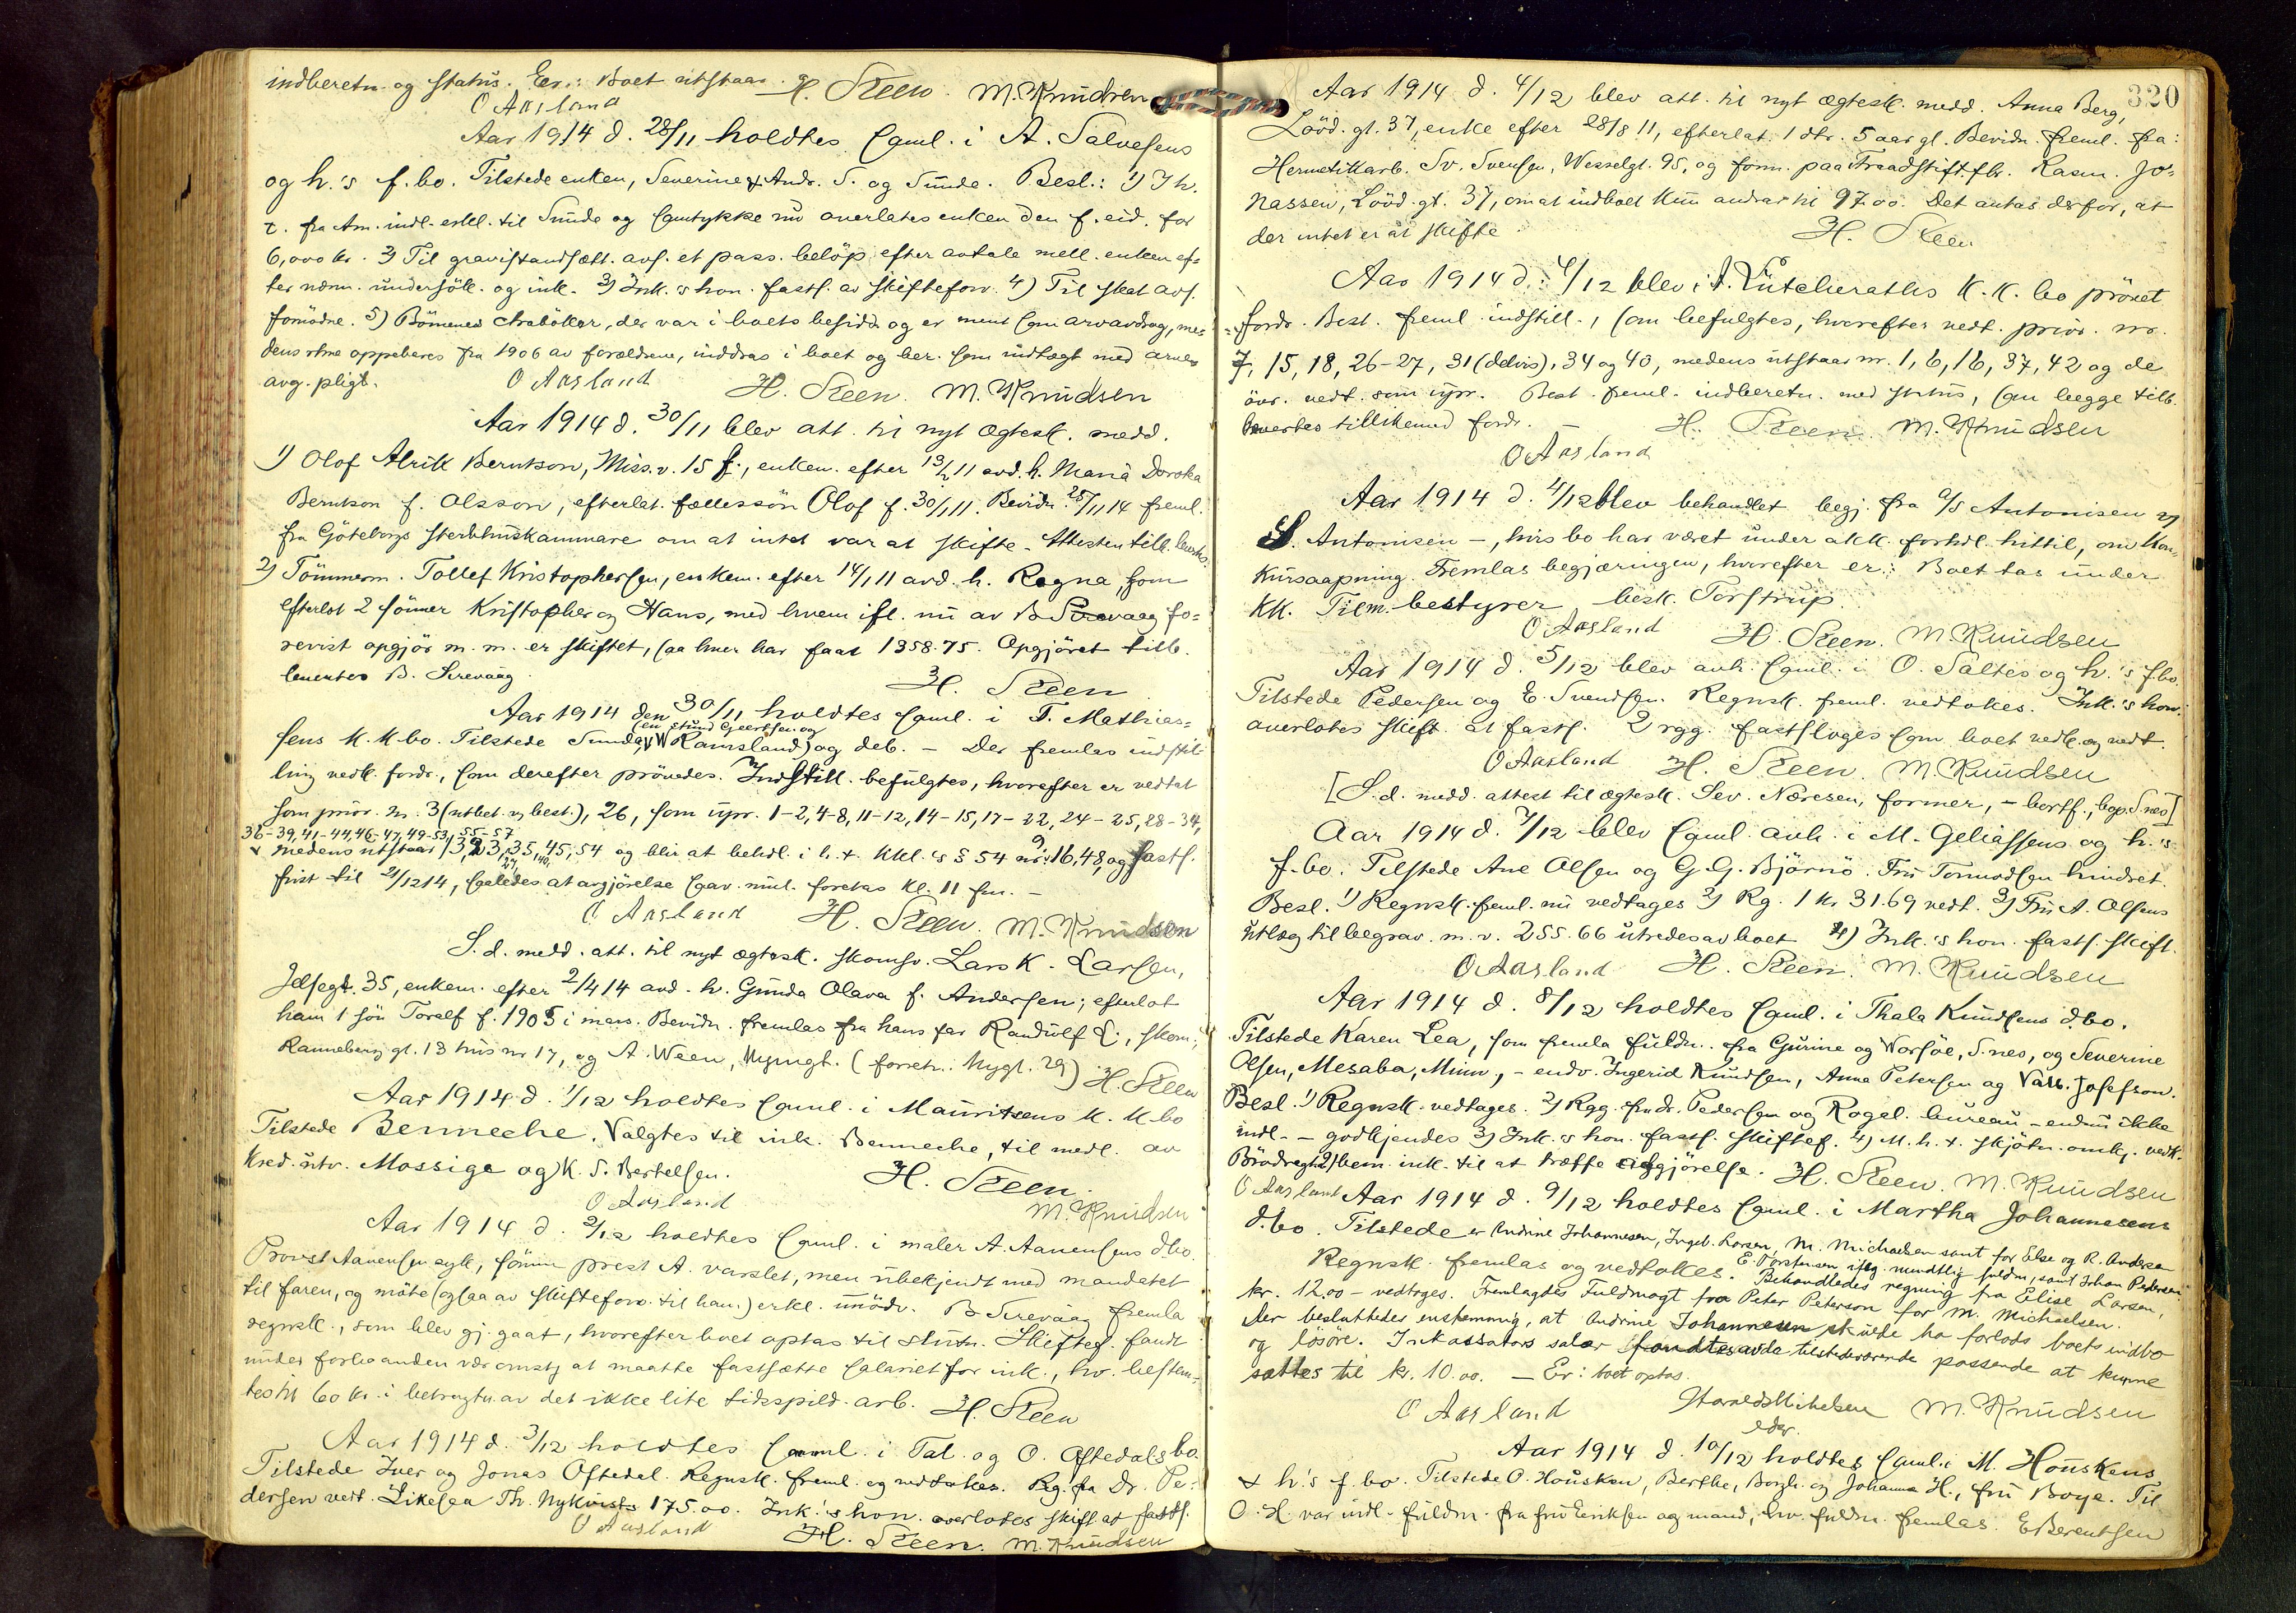 indberetn. og status. Er.: Boet utstaar. H. Steen. M. Knudsen
O Aasland
Aar 1914 d. 28/11 holdtes saml. i A. Salvesens
og h.'s f. bo. Tilstede enken, Severine & Andr. S. og Sunde. Besl.: 1)
t. fra Am. indl. erkl. til Sunde og samtykke nu overlates enken den f. eid. for
6,000 kr. 2) Til gravistandsætt. avs. et pass. beløp efter avtale mell. enken ef-
ter nærm. undersök. og ink. 3) Ink.'s hon. fasts. av skifteforv. 4) Til skat avs.
fornødne. 5) Børnenes bøker, der var i boets besidd. og er ment som arvavdrag, me-
dens rtne oppebæres fra 1906 av forældrene, inddras i boet og ber. som indtægt med arves
avg. pligt. O Aasland H. Steen. M. Knudsen
Aar 1914 d. 30/11 blev att. til nyt ægtesk. medd.
1) Olof Alrik Berntson, Miss.v. 15 f., enkem. efter 13/2 11 avd. h. Maria Dorotea
Berntson f. Olsson, efterlat. fællessön Olof f. 30/1 11. Bevidn. 25/11 14 freml.
fra Göteborgs sterbhuskammare om at intet var at skifte. Attesten tilb. leverts.
2) Tømmerm. Tollef Kristophersen, enkem. efter 14/1 11 avd. h. Ragna, som
efterlot 2 sönner Kristopher og Hans, med hvem ifl. nu av B Sirevaag fo-
revist opgjör m. m. er skiftet, saa hver har faat 1358.75. Opgjöret tilb.
levertes B. Sirevaag. H. Steen
Aar 1914 den 30/11 holdtes saml. i T. Mathias-
(en stund Geertsen og
sens K. K bo. Tilstede Sunde, W Ramsland) og deb. - Der fremlas indstil-
ling vedk. fordr., som derefter prövedes. Indstill. befulgtes, hvorefter er vedtat
som prior. nr. 3 (utbet. ved best.), 26, som upr. 1-2, 4-8, 11-12, 14-15, 17-22, 24-25, 28-34,
36-39, 41-44, 46-47, 49-53, 55-57
& medens utstaar 13, 23, 35, 45, 54 og blir at behdl. i h. t. Kkl.'s § 54 nr. 9, 16, 48, og fasts.
27, 40,
frist til 21/12 14, saaledes at avgjörelse foretas kl. 11 fm. -
O Aasland H. Steen. M. Knudsen
S. d. medd. att. til nyt ægtesk. skomgr. Lars K. Larsen,
Jelsegt. 35, enkem. efter 2/4 14 avd. h. Gunda Olava f. Andersen; efterlot
ham 1 sön Toralf f. 1905 i mars. Bevidn. fremlas fra hans far Randulf L., skom.,
Ranneberg gt. 13 hus nr 17, og A. Ween, Nygt. (forretn. Nygt. 29) H. Steen
Aar 1914 d. 1/12 holdtes saml. i Mauritsens K. K bo
Tilstede Benneche. Valgtes til ink. Benneche, til medl. av
Kred. utv. Mossige og K. S. Bertelsen. H. Steen.
O Aasland M. Knudsen
Aar 1914 d. 2/12 holdtes saml. i maler A. Aanensens dbo.
Provst Aanensen syk, sönnen prest A. varslet, men ubekjendt med mandatet
til faren, og möte (ogsaa av skifteforv. til ham) erkl. unödv. B Sirevaag fremla
regnsk., som blev gj. gaat, hvorefter boet optas til slutn. Skiftef. fandt
under forhaanden vær. omst. at maatte fastsætte salæret for ink., hv. bestem-
tes til 60 kr. i betragtn. av det ikke lite tidsspild. arb. H. Steen
Aar 1914 d. 3/12 holdtes saml. i Tal. og O. Oftedals bo.
Tilstede Iver og Jonas Oftedal. Regnsk. freml. og vedtokes. Rg. fra Dr. Pe-
dersen vedt. Likesaa Th. Nykvists 175.00. Ink.'s hon. overlotes skift. at fasts.
O Aasland H. Steen. M. Knudsen
320
Aar 1914 d. 4/12 blev att. til nyt ægtesk. medd. Anna Berg,
Lövd. gt. 37, enke efter 28/8 11, efterlat. 1 dtr. 5 aar gl. Bevidn. freml. fra:
Hermetikarb. Sv. Svensen, Wesselgt. 95, og form. paa Traadstiftfbr. Rasm. Jo-
nassen, Lövd. gt. 37, om at indboet kun andrar til 97.00. Det antas derfor, at
der intet er at skifte. H. Steen
Aar 1914 d. 4/12 blev i A. Lütcheraths K. K. bo prövet
fordr. Best. freml. indstill., som befulgtes, hvorefter vedt. prior. nr.
7, 15, 18, 26-27, 31 (delvis), 34 og 40, medens utstaar nr. 1, 6, 16, 37, 42 og de
övr. vedt. som upr. Best. freml. indberetn. med status, som begge tilb.
levertes tillikemed fordr. - H. Steen. M. Knudsen
O Aasland
Aar 1914 d. 4/12 blev behandlet begj. fra a/s Antonisen og
S. Antonisen -, hvis bo har været under akk. forhdl. hittil, om kon-
kursaapning. Fremlas begjæringen, hvorefter er: Boet tas under
KK. Tilm. bestyrer besk. Torstrup.
O Aasland H. Steen. M Knudsen
Aar 1914 d. 5/12 blev avh. saml. i O. Saltes og h.'s f bo.
Tilstede Pedersen og E. Svendsen. Regnsk. freml. vedtokes. Ink.'s hon.
overlotes skift. at fasts. 2 rgg. fastsloges som boet vedk. og vedt.
O Aasland H. Steen. M. Knudsen
[S. d. medd. attest til ægtesk. Sev. Næresen, former, - bortf., bop. S.nes]
Aar 1914 d. 7/12 blev saml. avh. i M. Geliassens og h.'s
f. bo. Tilstede Ane Olsen og G. G. Björnö. Fru Tormodsen hindret.
Besl. 1) Regnsk. freml. nu vedtages 2) Rg. 1 kr 31.69 vedt. 3) Fru A. Olsens
utlæg til begrav. m. v. 255.66 utredes av boet 4) Ink.'s hon. fasts. skift.
O Aasland H. Steen. M. Knudsen
Aar 1914 d. 8/12 holdtes saml. i Thala Knudsens d. bo.
Tilstede Karen Lea, som fremla fuldm. fra Gurine og Norsöe, S.nes, og Severine
Olsen, Mesaba, Minn., - endv. Ingerid Knudsen, Anna Petersen og Josefson.
Besl. 1) Regnsk. vedtages. 2) Rgg. fra dr. Pedersen og Rogal. bureau - endnu ikke
indl. - godkjendes 3) Ink.'s hon. fasts. skiftef. 4) M. h. t. skjötn. omk. vedk.
bem. ink. til at træffe avgjörelse. H. Steen. M. Knudsen
O Aasland Aar 1914 d. 9/12 holdtes saml. i Martha Johannesens
d. bo. Tilstede er Andrine Johannesen, Ingeb. Larsen, M. Michaelsen samt for Else og R. Andersen
E. Torstensen iflg. mundtlig fuldm., samt Johan Pedersen.
Regnsk. fremlas og vedtokes. Behandledes regning fra Elise Larsen,
kr. 12.00 - vedtoges. Fremlagdes Fuldmagt fra Peter Peterson for M. Michaelsen.
Der besluttedes enstemmig, at Andrine Johannesen skulde ha forlods boets indbo
og lösöre. Inkassators salær fandtes av de tilstedeværende passende at kunne
sættes til kr. 10.00. - Er: boet optas.
O Aasland Harald Mikelsen M. Knudsen
edsv.
Aar 1914 d. 10/12 holdtes saml. i M. Houskens
& h.'s f. bo. Tilstede O. Housken, Berthe, Borgh. og Johanna H., fru Boye. Til
O. H. var indl. fuldm. fra fru Eriksen og mand, hv. fuldm. fremlas. E Berentsen